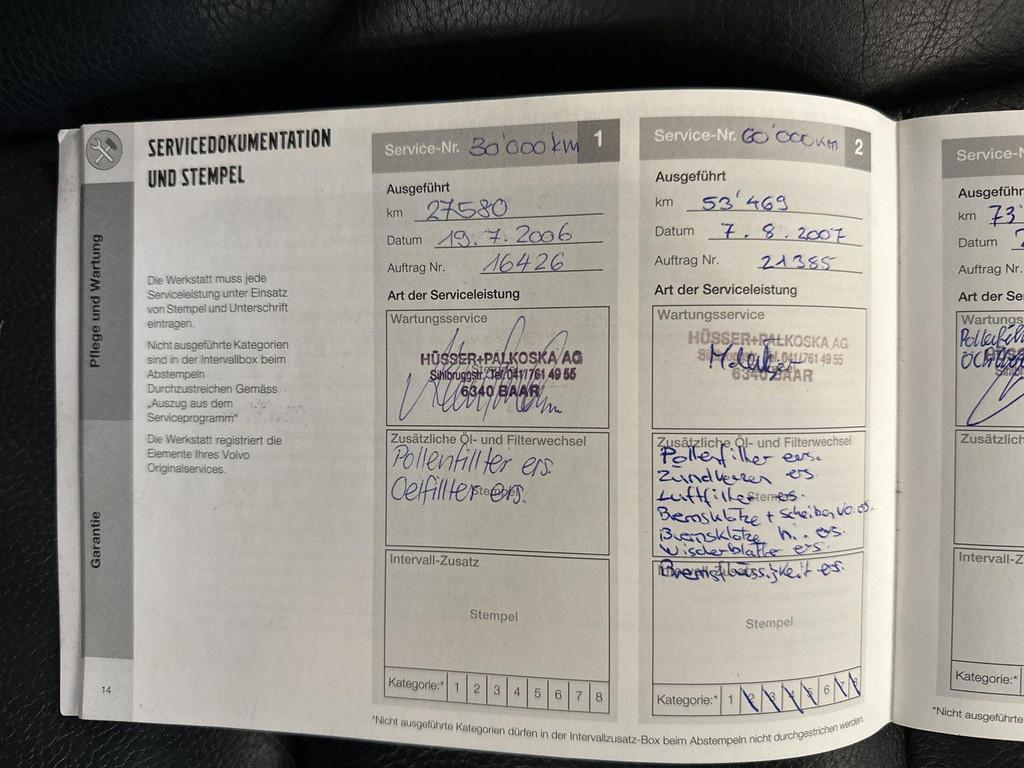 SERVICEDOKUMENTATION
UND STEMPEL
Pflege und Wartung
Garantie
Die Werkstatt muss jede
Serviceleistung unter Einsatz
von Stempel und Unterschrift
eintragen.
Nicht ausgeführte Kategorien
sind in der Intervallbox beim
Abstempeln
Durchzustreichen Gemäss
„Auszug aus dem
Serviceprogramm"
Die Werkstatt registriert die
Elemente Ihres Volvo
Originalservices.
14
Service-Nr. 30'000 km 1
Ausgeführt
km 27580
Datum 19.7.2006
Auftrag Nr. 16426
Art der Serviceleistung
Wartungsservice
HÜSSER+PALKOSKA AG
Sihlbruggstr. Tel. 041/761 49 55
6340 BAAR
Zusätzliche Öl- und Filterwechsel
Pollenfillter ers.
Oelfillter ers.
Stempel
Intervall-Zusatz
Stempel
Kategorie:* 1 2 3 4 5 6 7 8
Service-Nr. 60'000 km 2
Ausgeführt
km 53'469
Datum 7.8.2007
Auftrag Nr. 21385
Art der Serviceleistung
Wartungsservice
HÜSSER+PALKOSKA AG
Tel. 041/761 49 55
6340 BAAR
Zusätzliche Öl- und Filterwechsel
Pollenfilter ers.
Zündkerzen ers.
Luftfilter ers.
Stempel
Bremsklötze + Scheiben vo. ers.
Bremsklötze hi. ers.
Wischerblätter ers.
Bremsflüssigkeit ers.
Stempel
Kategorie:* 1 2 3 4 5 6 7 8
*Nicht ausgeführte Kategorien dürfen in der Intervallzusatz-Box beim Abstempeln nicht durchgestrichen werden.
Service-N
Ausgeführ
km 73'
Datum
Auftrag Nr
Art der Ser
Wartungs
Zusätzlich
Intervall-Z
Kategorie:*
*Nicht ausgeführte